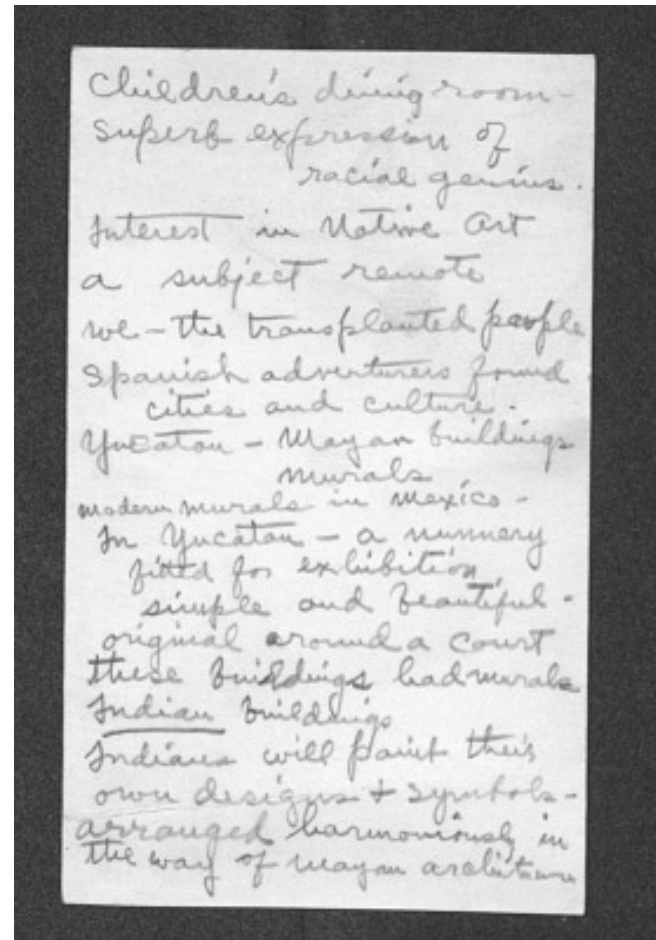 Children's dining room -
Superb expression of
racial genius.
Interest in Native Art
a subject remote
we - the transplanted people
Spanish adventurers found
cities and culture.
Yucatan - Mayan buildings
murals
modern murals in Mexico -
In Yucatan - a nunnery
fitted for exhibition
simple and beautiful -
original around a court
these buildings had murals
Indian buildings
Indians will paint their
own designs + symbols -
arranged harmoniously in
the way of mayan architecture